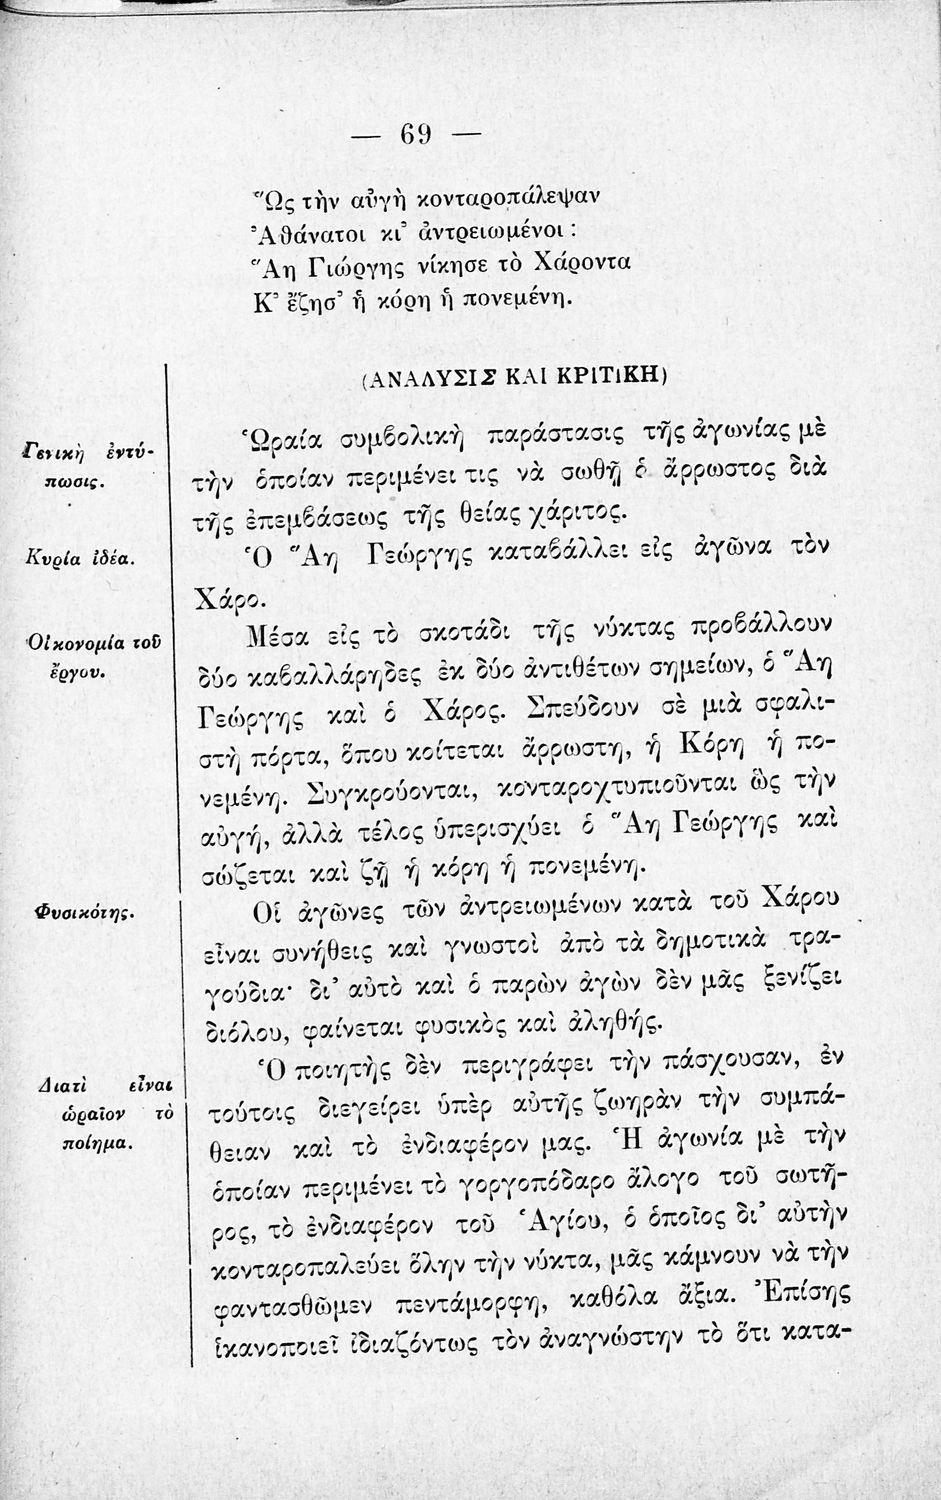 — 69 —
Ὣς τὴν αὐγὴ κονταροπάλεψαν
Ἀθάνατοι κι᾽ ἀντρειωμένοι :
Ἅη Γιώργης νίκησε τὸ Χάροντα
Κ᾽ ἔζησ᾽ ἡ κόρη ἡ πονεμένη.
(ΑΝΑΛΥΣΙΣ ΚΑΙ ΚΡΙΤΙΚΗ)
Γενικὴ ἐντύ-
πωσις.
Ὡραία συμβολικὴ παράστασις τῆς ἀγωνίας μὲ
τὴν ὁποίαν περιμένει τις νὰ σωθῇ ὁ ἄρρωστος διὰ
τῆς ἐπεμβάσεως τῆς θείας χάριτος.
Κυρία ἰδέα.
Ὁ Ἅη Γεώργης καταβάλλει εἰς ἀγῶνα τὸν
Χάρο.
Οἰκονομία τοῦ
ἔργου.
Μέσα εἰς τὸ σκοτάδι τῆς νύκτας προβάλλουν
δύο καβαλλάρηδες ἐκ δύο ἀντιθέτων σημείων, ὁ Ἅη
Γεώργης καὶ ὁ Χάρος. Σπεύδουν σὲ μιὰ σφαλι-
στὴ πόρτα, ὅπου κοίτεται ἄρρωστη, ἡ Κόρη ἡ πο-
νεμένη. Συγκρούονται, κονταροχτυπιοῦνται ὣς τὴν
αὐγή, ἀλλὰ τέλος ὑπερισχύει ὁ Ἅη Γεώργης καὶ
σώζεται καὶ ζῇ ἡ κόρη ἡ πονεμένη.
Φυσικότης.
Οἱ ἀγῶνες τῶν ἀντρειωμένων κατὰ τοῦ Χάρου
εἶναι συνήθεις καὶ γνωστοὶ ἀπὸ τὰ δημοτικὰ τρα-
γούδια· δι᾽ αὐτὸ καὶ ὁ παρὼν ἀγὼν δὲν μᾶς ξενίζει
διόλου, φαίνεται φυσικὸς καὶ ἀληθής.
Διατὶ εἶναι
ὡραῖον τὸ
ποίημα.
Ὁ ποιητὴς δὲν περιγράφει τὴν πάσχουσαν, ἐν
τούτοις διεγείρει ὑπὲρ αὐτῆς ζωηρὰν τὴν συμπά-
θειαν καὶ τὸ ἐνδιαφέρον μας. Ἡ ἀγωνία μὲ τὴν
ὁποίαν περιμένει τὸ γοργοπόδαρο ἄλογο τοῦ σωτῆ-
ρος, τὸ ἐνδιαφέρον τοῦ Ἁγίου, ὁ ὁποῖος δι᾽ αὐτὴν
κονταροπαλεύει ὅλην τὴν νύκτα, μᾶς κάμνουν νὰ τὴν
φαντασθῶμεν πεντάμορφη, καθόλα ἄξια. Ἐπίσης
ἱκανοποιεῖ ἰδιαζόντως τὸν ἀναγνώστην τὸ ὅτι κατα-